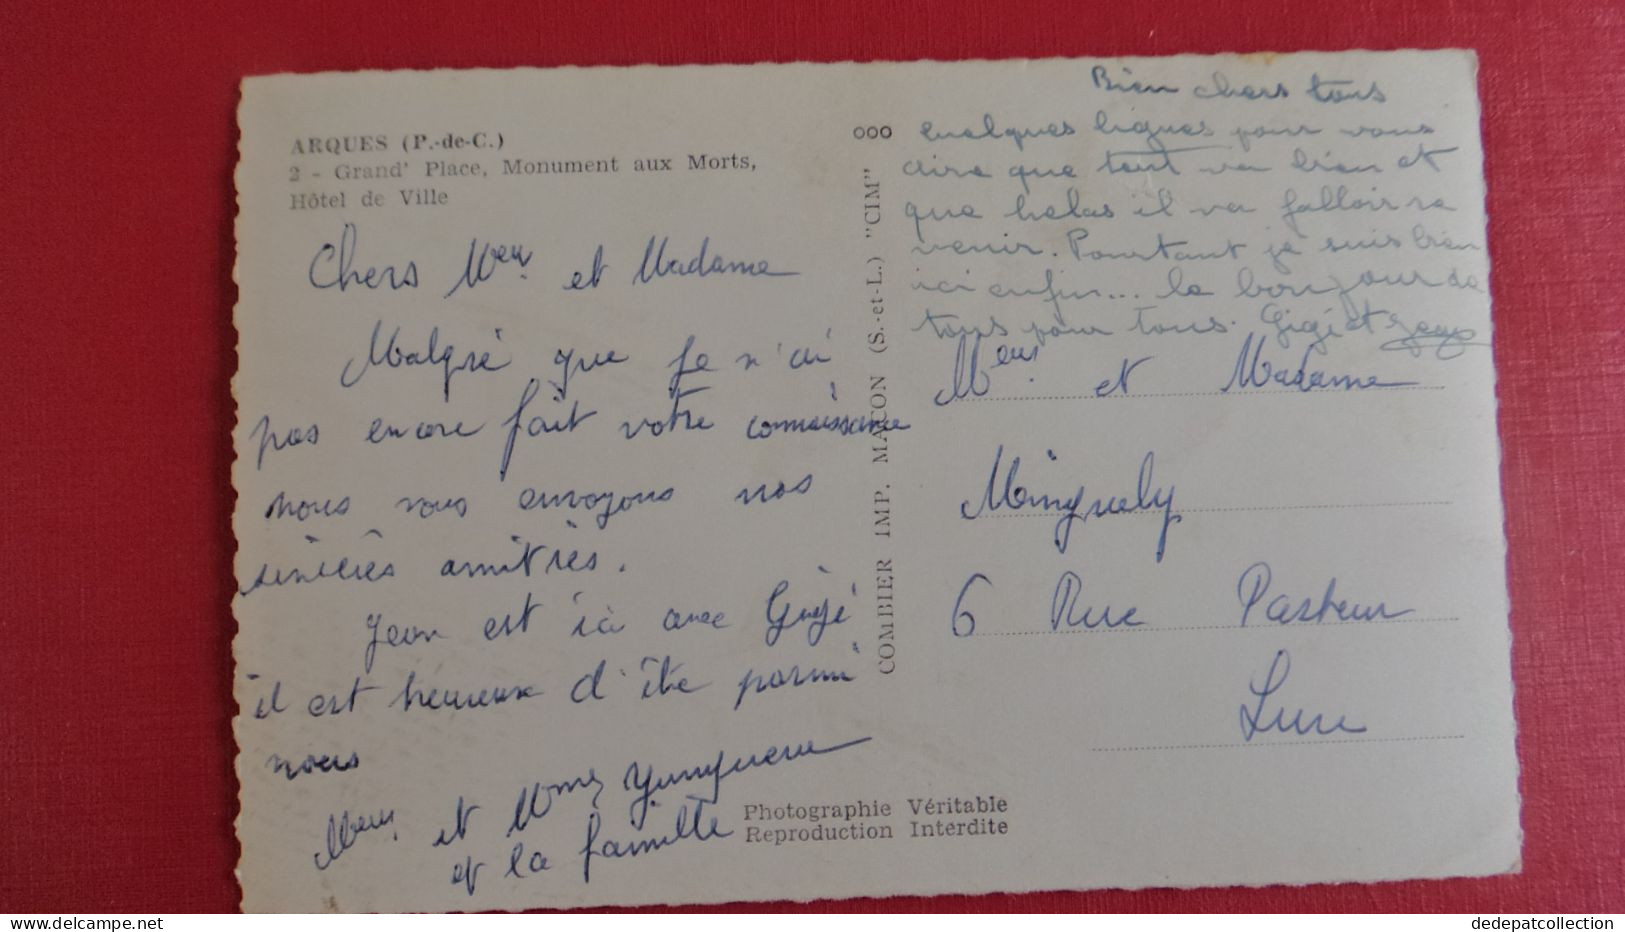 ARQUES (P.-de-C.)
2 - Grand' Place, Monument aux Morts,
Hôtel de Ville
Chers Meur. et Madame
Malgré que je n'ai
pas encore fait votre connaissance
nous vous envoyons nos
sincères amitiés.
Jean est ici avec Gigi
il est heureux d'être parmi
nous
Meur. et Mme
et la famille
COMBIER IMP. MACON (S.-et-L.) "CIM"
ooo
Photographie Véritable
Reproduction Interdite
Bien chers tous
quelques lignes pour vous
dire que tout va bien et
que helas il va falloir re
venir. Pourtant je suis bien
ici enfin... le bonjour de
tous pour tous. Gigi et Jean
Meur. et Madame
Minguely
6 Rue Pasteur
Lure
dedepatcollection